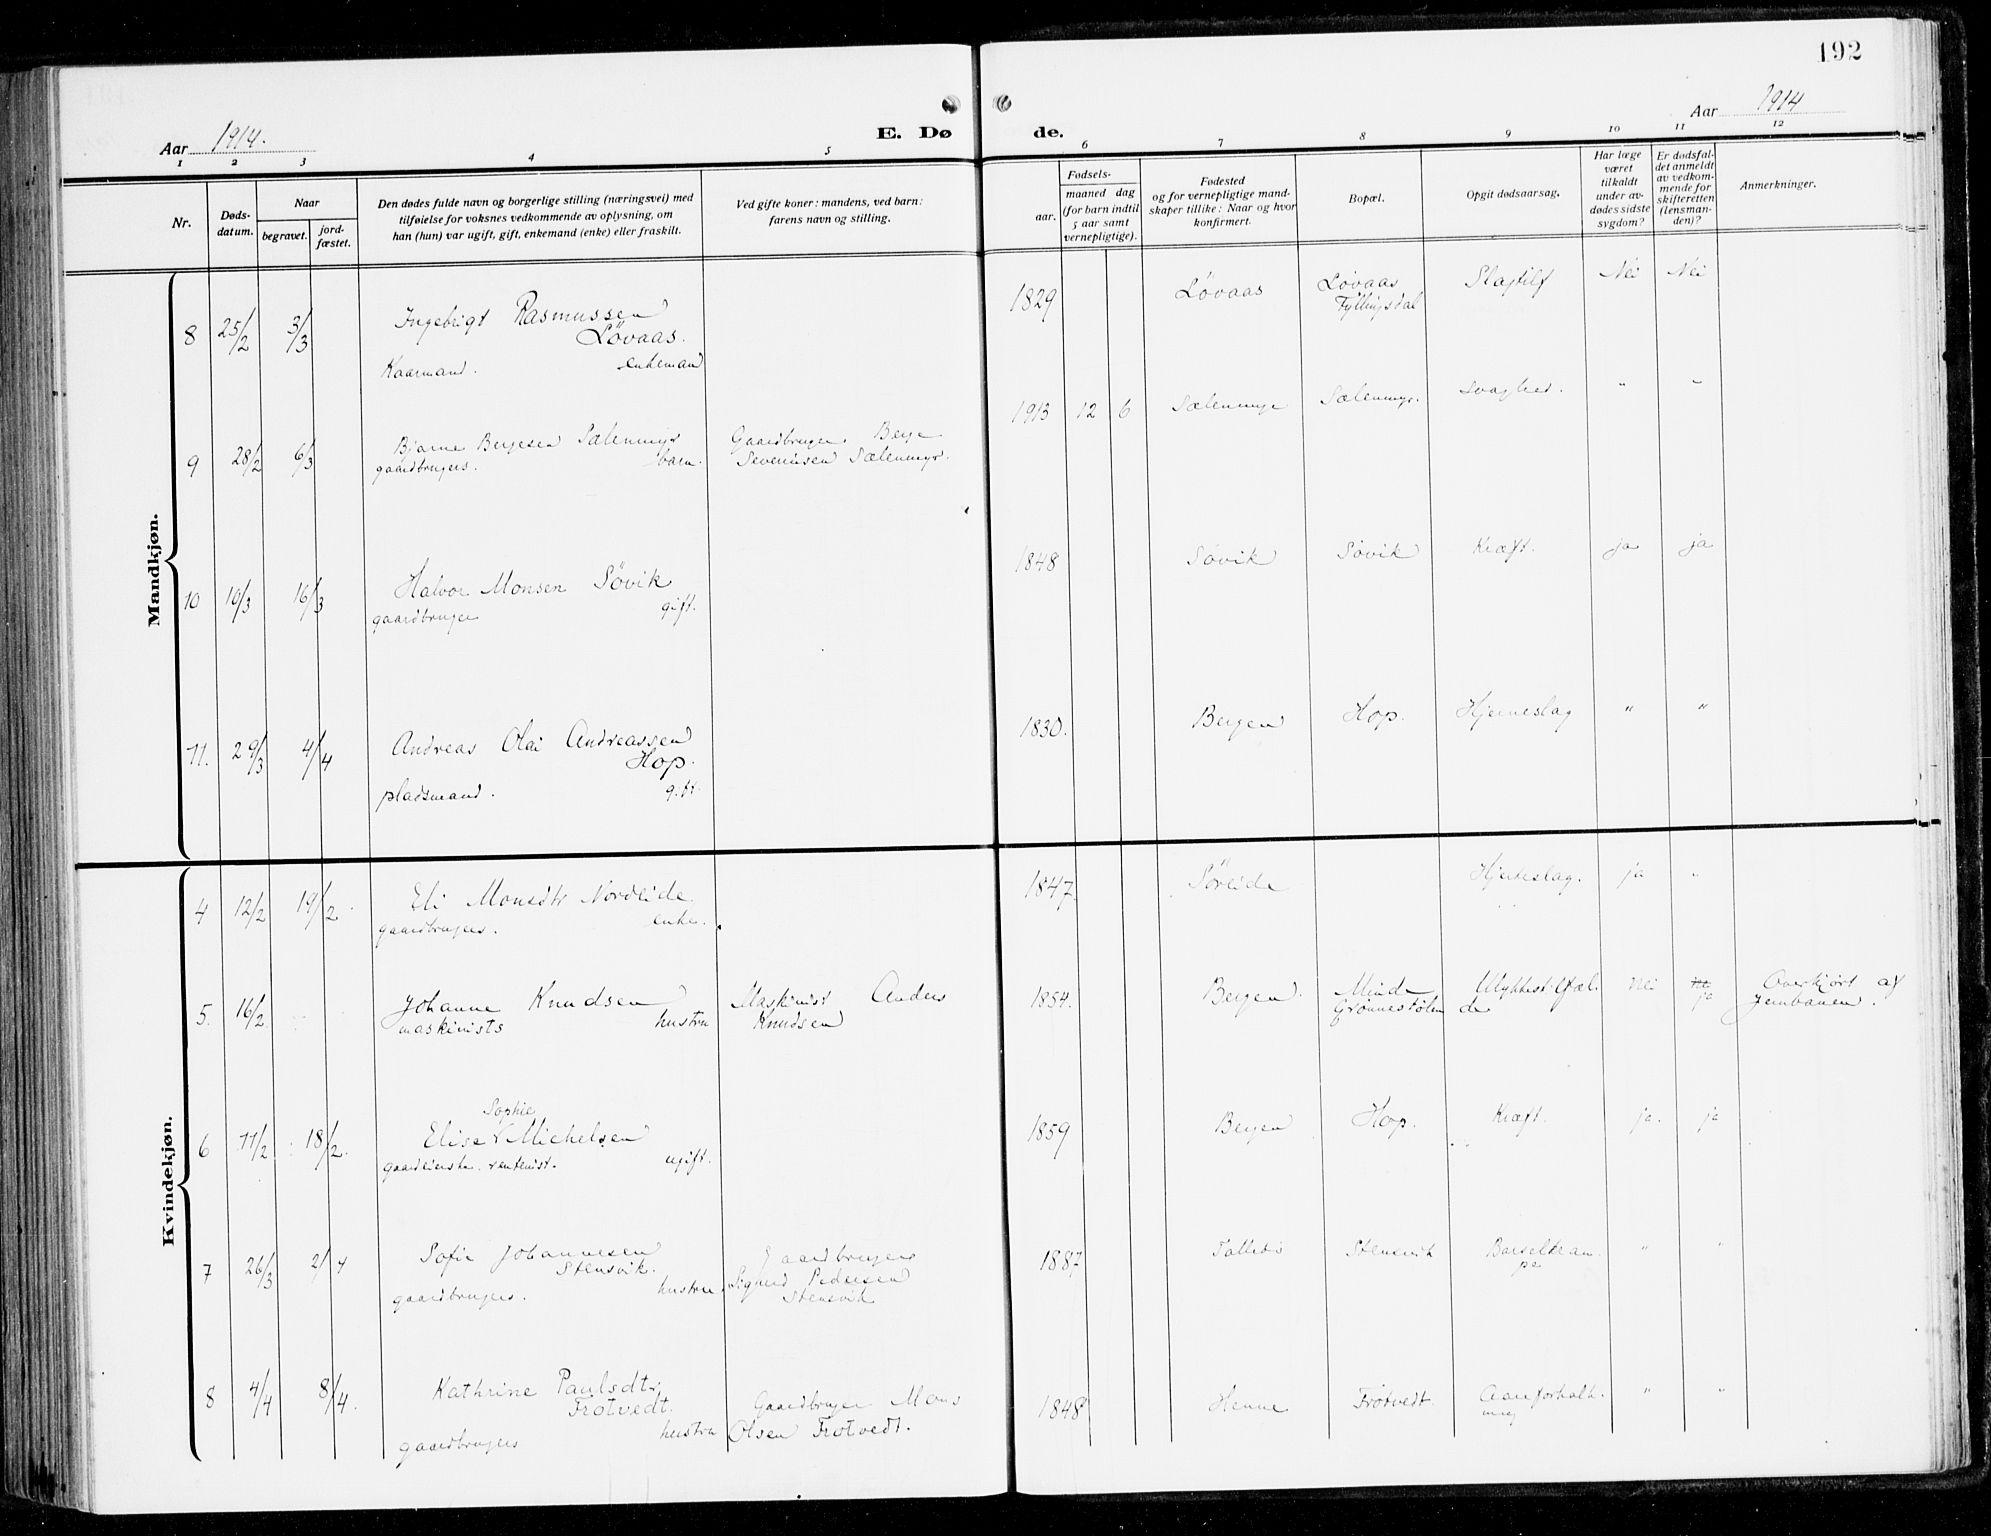 192
Aar 1914.
E. Dø de.
Aar 1914
1 2 3 4 5 6 7 8 9 10 11 12
Nr.
Døds-
datum.
Naar
begravet.
jord-
fæstet.
Den dødes fulde navn og borgerlige stilling (næringsvei) med
tilføielse for voksnes vedkommende av oplysning, om
han (hun) var ugift, gift, enkemand (enke) eller fraskilt.
Ved gifte koner: mandens, ved barn:
farens navn og stilling.
Fødsels-
aar.
maaned dag
(for barn indtil
5 aar samt
vernepligtige).
Fødested
og for vernepligtige mand-
skaper tillike: Naar og hvor
konfirmert.
Bopæl.
Opgit dødsaarsag.
Har læge
været
tilkaldt
under av-
dødes sidste
sygdom?
Er dødsfal-
det anmeldt
av vedkom-
mende for
skifteretten
(lensman-
den)?
Anmerkninger.
Mandkjøn.
8 25/2 3/3 Ingebrigt Rasmussen
Løvaas.
Kaarmand. enkemand
1829 Løvaas Løvaas
Fyllingsdal
Slagtilf Nei Nei
9 28/2 6/3 Bjarne Bergesen Sælenmyr
gaardbrugers. barn.
Gaardbruger Berge
Severinsen Sælenmyr.
1913 12 6 Sælenmyr Sælenmyr. Svaghet. " "
10 10/3 16/3 Halvor Monsen Søvik
gaardbruger gift.
1848 Søvik Søvik Kræft. ja ja
11. 29/3 4/4 Andreas Olai Andreassen
Hop.
pladsmand. gift.
1830. Bergen Hop. Hjerneslag " "
Kvindekjøn.
4 12/2 19/2. Eli Monsdtr Nordeide.
gaardbrugers. enke.
1847 Søreide Hjerteslag. ja "
5. 16/2 Johanne Knudsen
maskinists hustru
Maskinist Anders
Knudsen
1854. Bergen. Minde
Grønnestølen
Ulykkestilfæl
de
Nei ja
Overkjørt af
Jernbanen.
6 11/2 18/2. Sophie
Elise Michelsen
gaardeierske. rentenist. ugift.
1859 Bergen Hop. Kræft. ja. ja
7 26/3 2/4 Sofie Johannesen
Stensvik.
gaardbrugers. hustru
Gaardbruger
Sigurd Pedersen
Stensvik
1887 Stensvik Barselkram
pe
" "
8 4/4 8/4. Kathrine Paulsdtr
Frøtvedt.
gaardbrugers hustru
Gaardbruger Mons
Olsen Frøtvedt.
1848 Henne Frøtvedt. " "